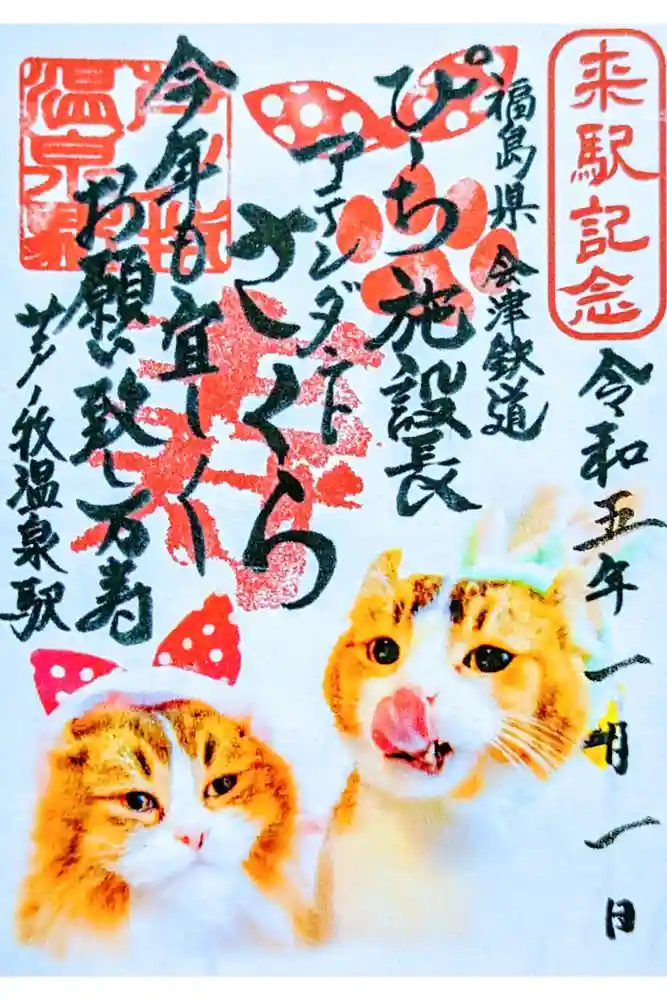 来駅記念
令和五年一月一日
福島県 会津鉄道
ぴーち施設長
アテンダント
さくら
今年も宜しく
お願い致し万寿
芦ノ牧温泉駅